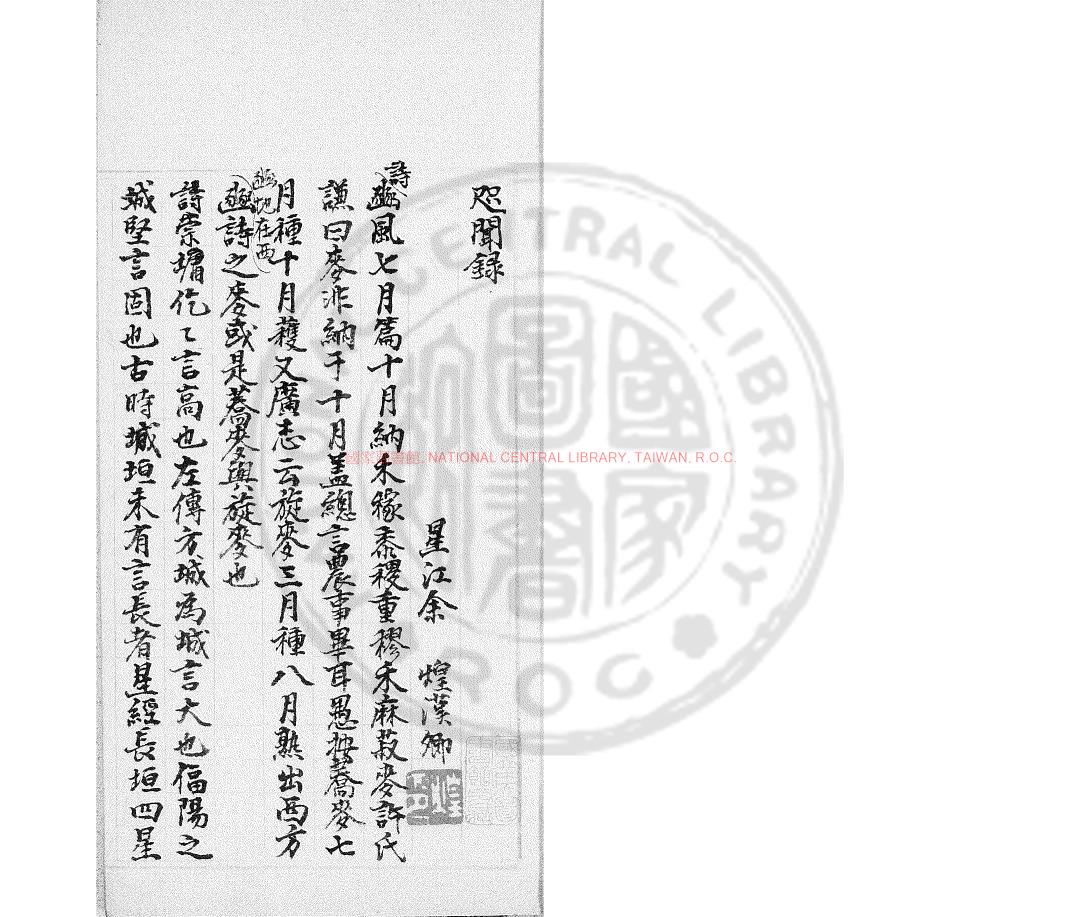 咫聞錄
星江余 煌漢卿
詩豳風七月篇十月納禾稼黍稷重穋禾麻菽麥許氏
謙曰麥非納于十月蓋總言農事畢耳愚按蕎麥七
月種十月穫又廣志云旋麥三月種八月熟出西方
豳地在西
豳詩之麥或是蕎麥與旋麥也
詩崇墉仡〻言高也左傳方城為城言大也偪陽之
城堅言固也古時城垣未有言長者星經長垣四星
國家圖書館, NATIONAL CENTRAL LIBRARY, TAIWAN, R.O.C.